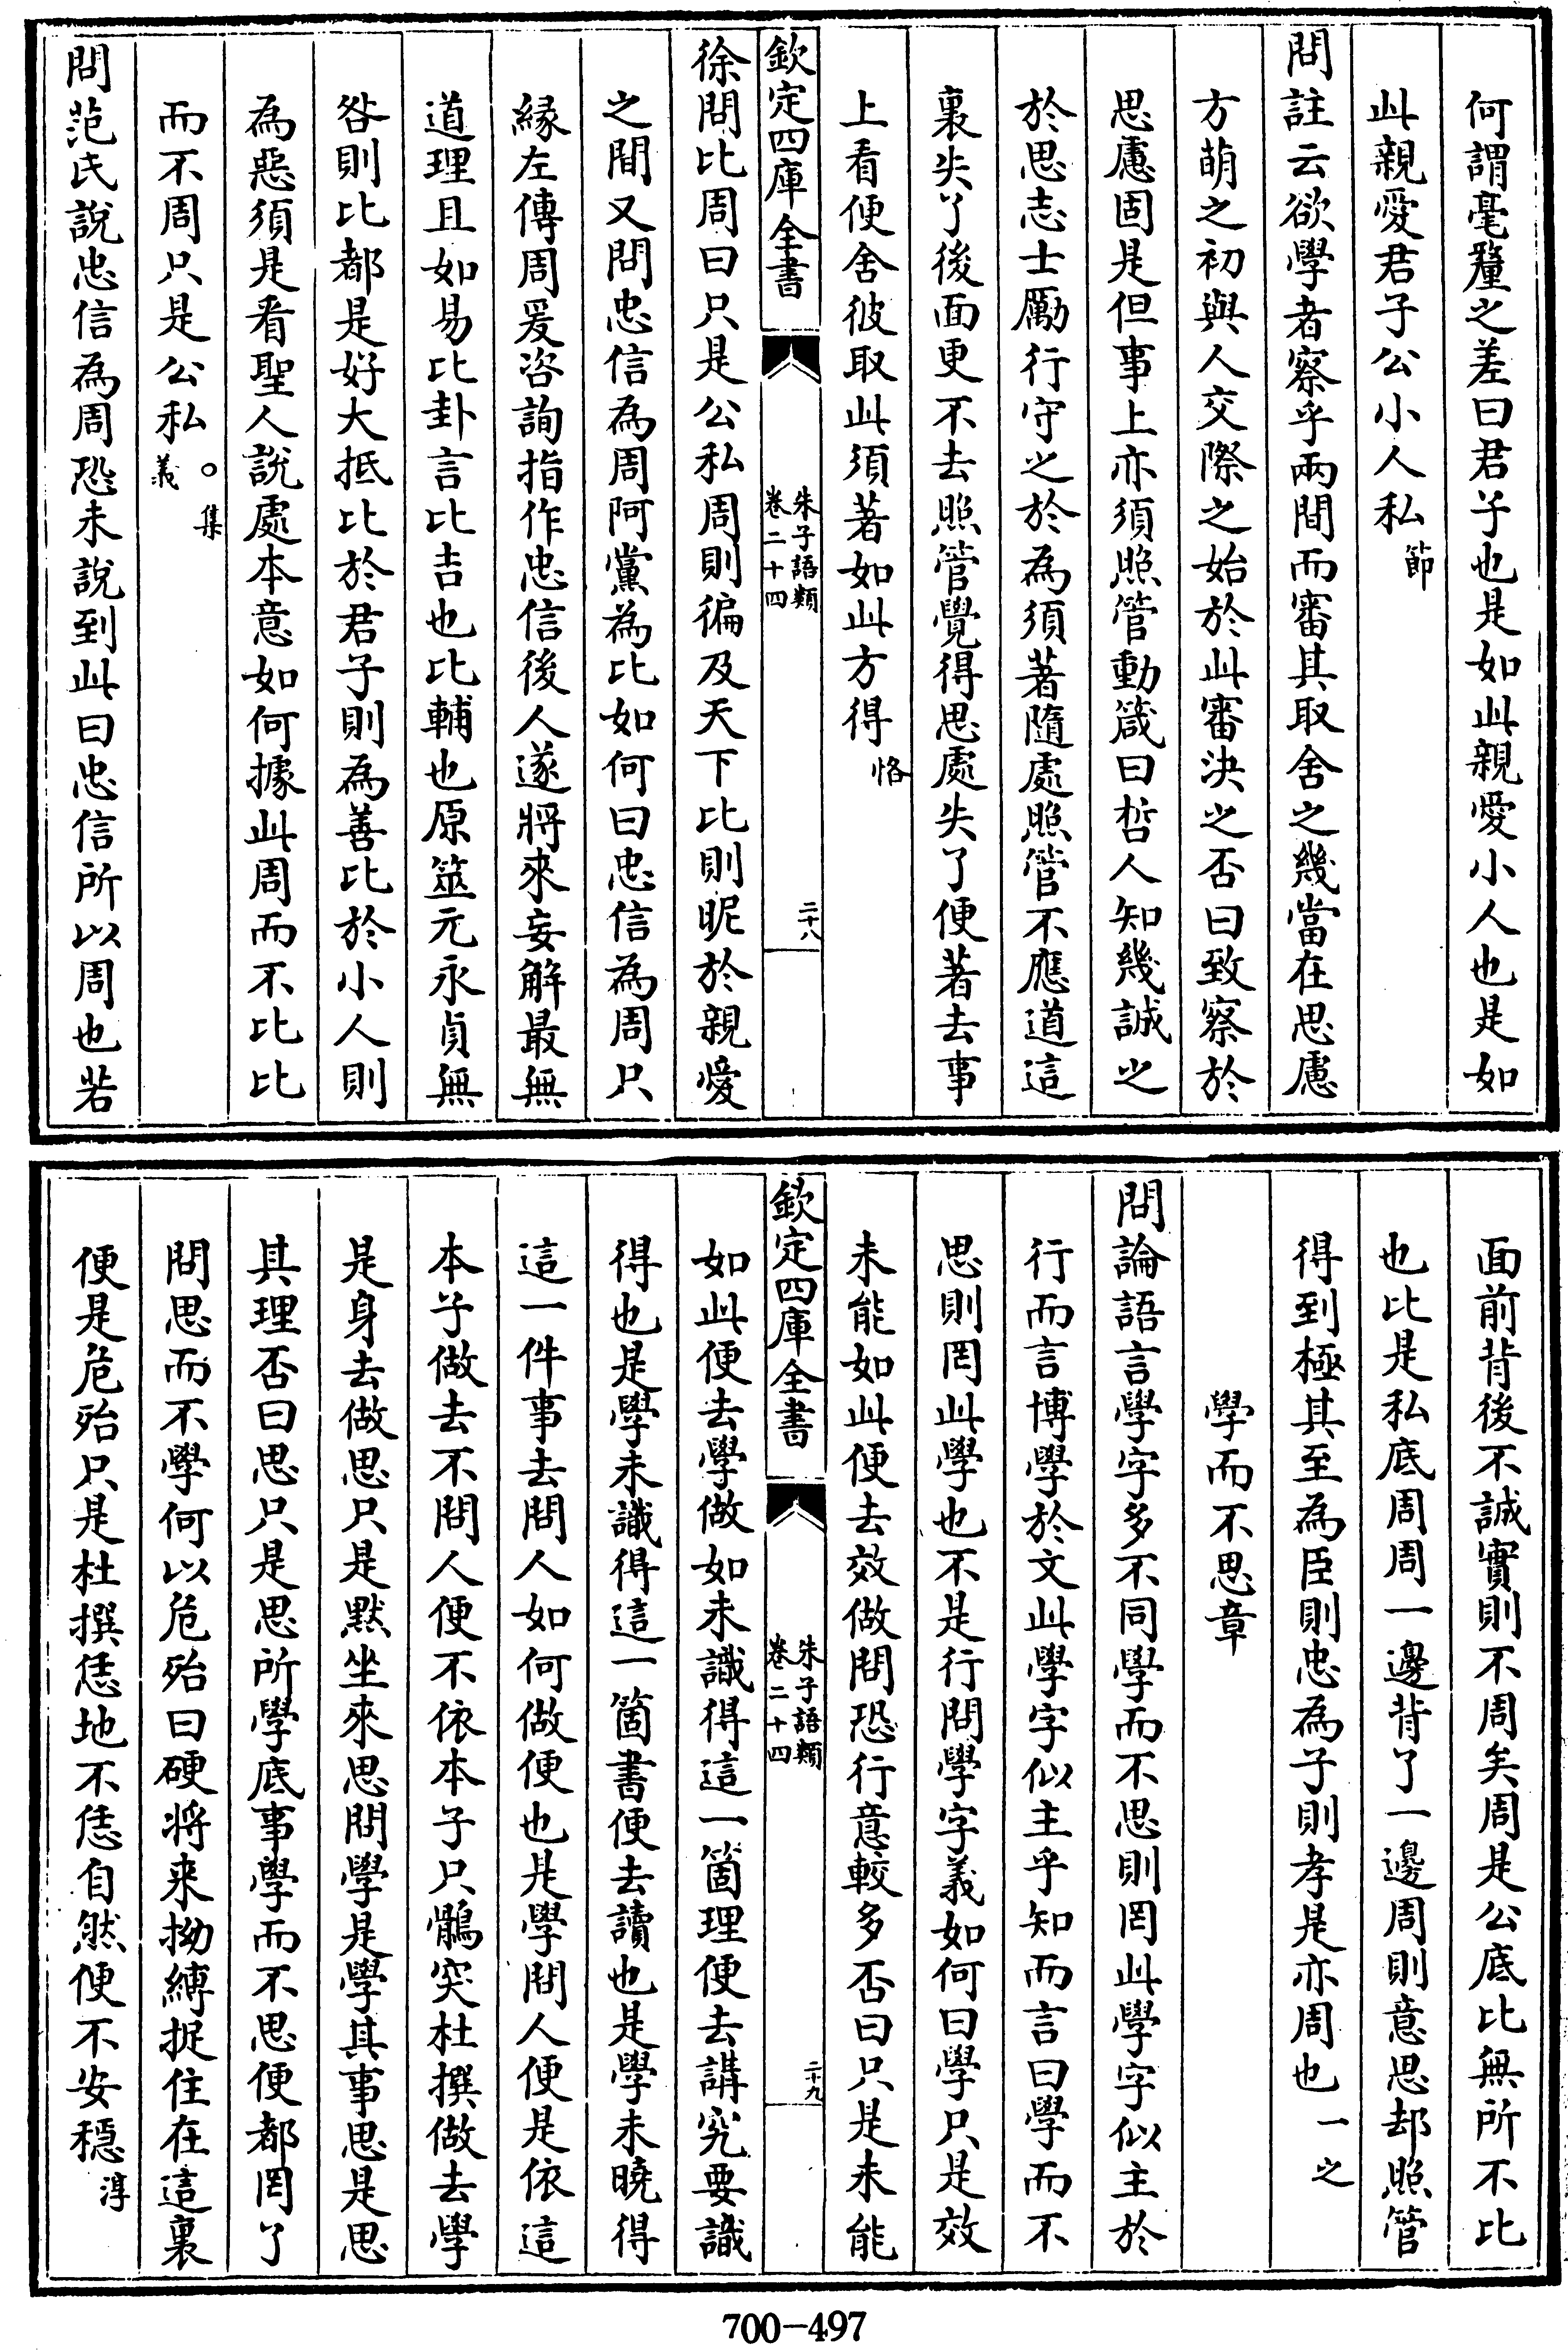 何謂毫釐之差曰君子也是如此親愛小人也是如
此親愛君子公小人私節
問註云欲學者察乎兩間而審其取舍之幾當在思慮
方萌之初與人交際之始於此審決之否曰致察於
思慮固是但事上亦須照管動箴曰哲人知幾誠之
於思志士厲行守之於為須著隨處照管不應道這
裏失了後面更不去照管覺得思處失了便著去事
上看便舍彼取此須著如此方得恪
欽定四庫全書
朱子語類
卷二十四
二十八
徐問比周曰只是公私周則徧及天下比則昵於親愛
之間又問忠信為周阿黨為比如何曰忠信為周只
緣左傳周爰咨詢指作忠信後人遂將來妄解最無
道理且如易比卦言比吉也比輔也原筮元永貞無
咎則比都是好大抵比於君子則為善比於小人則
為惡須是看聖人說處本意如何據此周而不比比
而不周只是公私○集義
問范氏說忠信為周恐未說到此曰忠信所以周也若
面前背後不誠實則不周矣周是公底比無所不比
也比是私底周周一邊背了一邊周則意思却照管
得到極其至為臣則忠為子則孝是亦周也一之
學而不思章
問論語言學字多不同學而不思則罔此學字似主於
行而言博學於文此學字似主乎知而言曰學而不
思則罔此學也不是行問學字義如何曰學只是效
未能如此便去效做問恐行意較多否曰只是未能
欽定四庫全書
朱子語類
卷二十四
二十九
如此便去學做如未識得這一箇理便去講究要識
得也是學未識得這一箇書便去讀也是學未曉得
這一件事去問人如何做便也是學問人便是依這
本子做去不問人便不依本子只鶻突杜撰做去學
是身去做思只是默坐來思問學是學其事思是思
其理否曰思只是思所學底事學而不思便都罔了
問思而不學何以危殆曰硬將來拗縛捉住在這裏
便是危殆只是杜撰恁地不恁自然便不安穩淳
700-497